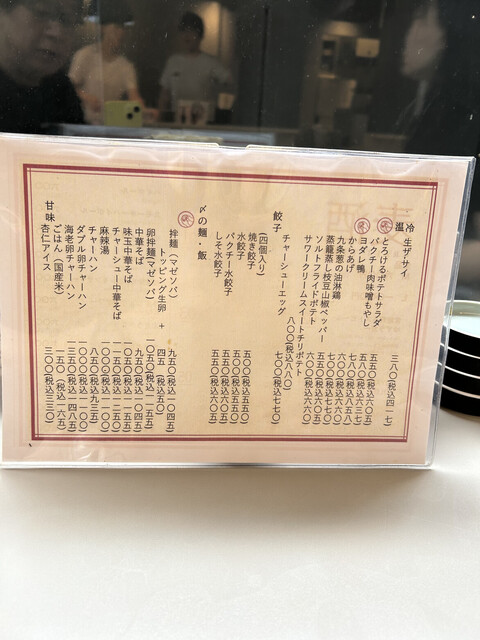 冷 生ザサイ 三八〇(税込四一七)
とろけるポテトサラダ 五五〇(税込六〇五)
パクチー肉味噌もやし 五五〇(税込六〇五)
ヨダレ鴨 五八〇(税込六三七)
温 からあげ 七八〇(税込八五八)
九条葱の油淋鶏 六〇〇(税込六六〇)
蒸籠蒸し枝豆山椒ペッパー 七〇〇(税込七七〇)
ソルトフライドポテト 五五〇(税込六〇五)
サワークリームスイートチリポテト 六〇〇(税込六六〇)
チャーシューエッグ 七〇〇(税込七七〇)
八〇〇(税込八八〇)
餃子
(四個入り)
焼き餃子 五〇〇(税込五五〇)
水餃子 五〇〇(税込五五〇)
パクチー水餃子 五五〇(税込六〇五)
しそ水餃子 五五〇(税込六〇五)
〆の麺・飯
拌麺(マゼソバ) 九五〇(税込一〇四五)
トッピング生卵 + 四五(税込五〇)
卵拌麺(マゼソバ) 一〇五〇(税込一一五五)
中華そば 九五〇(税込一〇四五)
味玉中華そば 一〇五〇(税込一一五五)
チャーシュー中華そば 一一五〇(税込一二六五)
麻辣湯 一〇〇〇(税込一一〇〇)
チャーハン 八五〇(税込九三五)
ダブル卵チャーハン 一〇〇〇(税込一一〇〇)
海老卵チャーハン 一三五〇(税込一四八五)
ごはん(国産米) 一五〇(税込一六五)
甘味 杏仁アイス 三〇〇(税込三三〇)